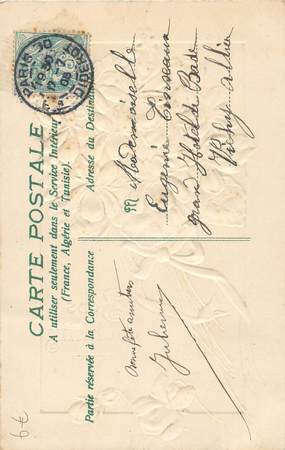 CARTE POSTALE
A utiliser seulement dans le Service Intérieur
(France, Algérie et Tunisie).
Partie réservée à la Correspondance
Adresse du Destinataire
PARIS
M Mademoiselle
Eugénie
Grand Hôtel de Bade
Vichy Allier
Bonne fête
6€